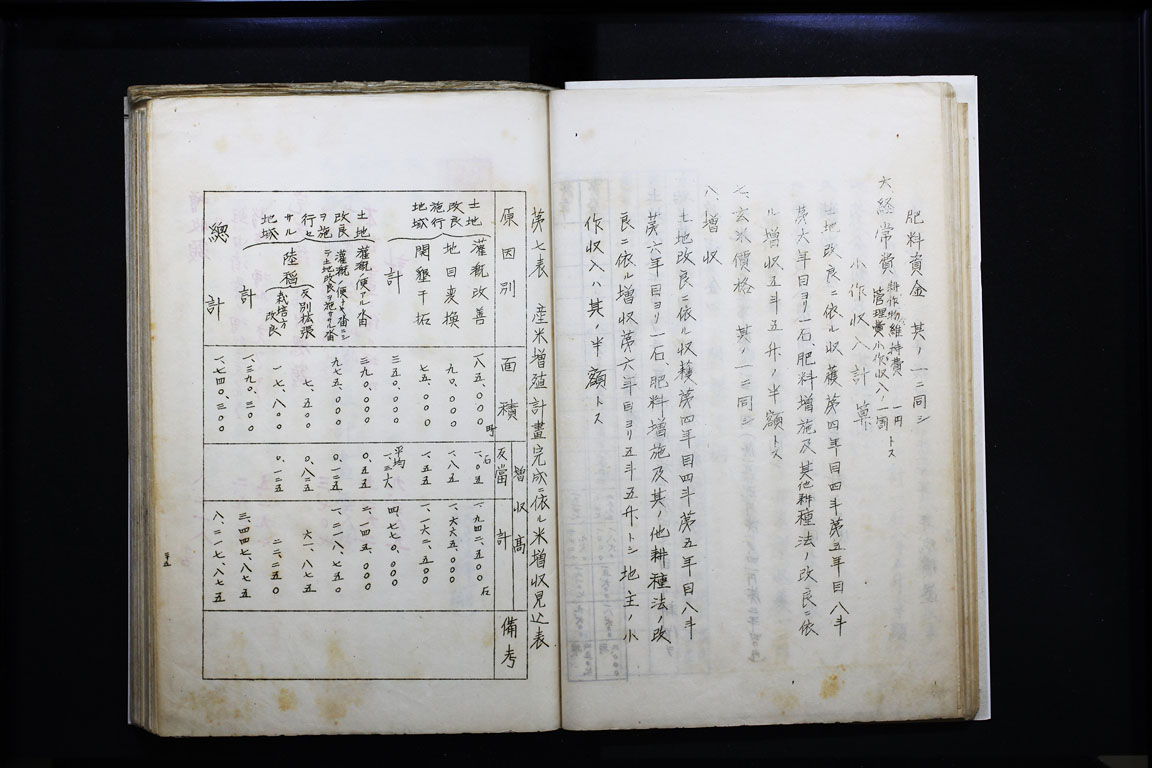 肥料資金 其ノ一ニ同シ
六、経常費 耕作物維持費 一円
管理費小作収入ノ一割 トス
小作収入計算
土地改良ニ依ル収穫第四年目四斗第五年目八斗
第六年目ヨリ一石、肥料増施及其他耕種法ノ改良ニ依
ル増収五斗五升ノ半額トス
七、玄米價格 其ノ一ニ同シ
八、増収
土地改良ニ依ル収穫第四年目四斗第五年目八斗
第六年目ヨリ一石肥料増施及其ノ他耕種法ノ改
良ニ依ル増収第六年目ヨリ五斗五升トシ地主ノ小
作収入ハ其ノ半額トス
第七表 産米増殖計畫完成ニ依ル米増収見込表
原因別 面積 増収高 反當 計 備考
土地改良施行地域
灌漑改善 一八五、〇〇〇町 一、〇五石 一、九四二、五〇〇石
地目変換 九〇、〇〇〇 一、八五 一、六六五、〇〇〇
開墾干拓 七五、〇〇〇 一、五五 一、一六二、五〇〇
計 三五〇、〇〇〇 平均一、三六 四、七七〇、〇〇〇
土地改良ヲ施行セサル地域
灌漑ノ便アル畓 三九〇、〇〇〇 〇、五五 二、一四五、〇〇〇
灌漑ノ便ナキ畓ニシテ土地改良ヲ施サザル畓 九七五、〇〇〇 〇、一二五 一、二一八、七五〇
陸稲
反別拡張 七、五〇〇 〇、八二五 六一、八七五
栽培方改良 一七、八〇〇 〇、一二五 二二、二五〇
計 一、三九〇、三〇〇 三、四四七、八七五
總計 一、七四〇、三〇〇 八、二一七、八七五